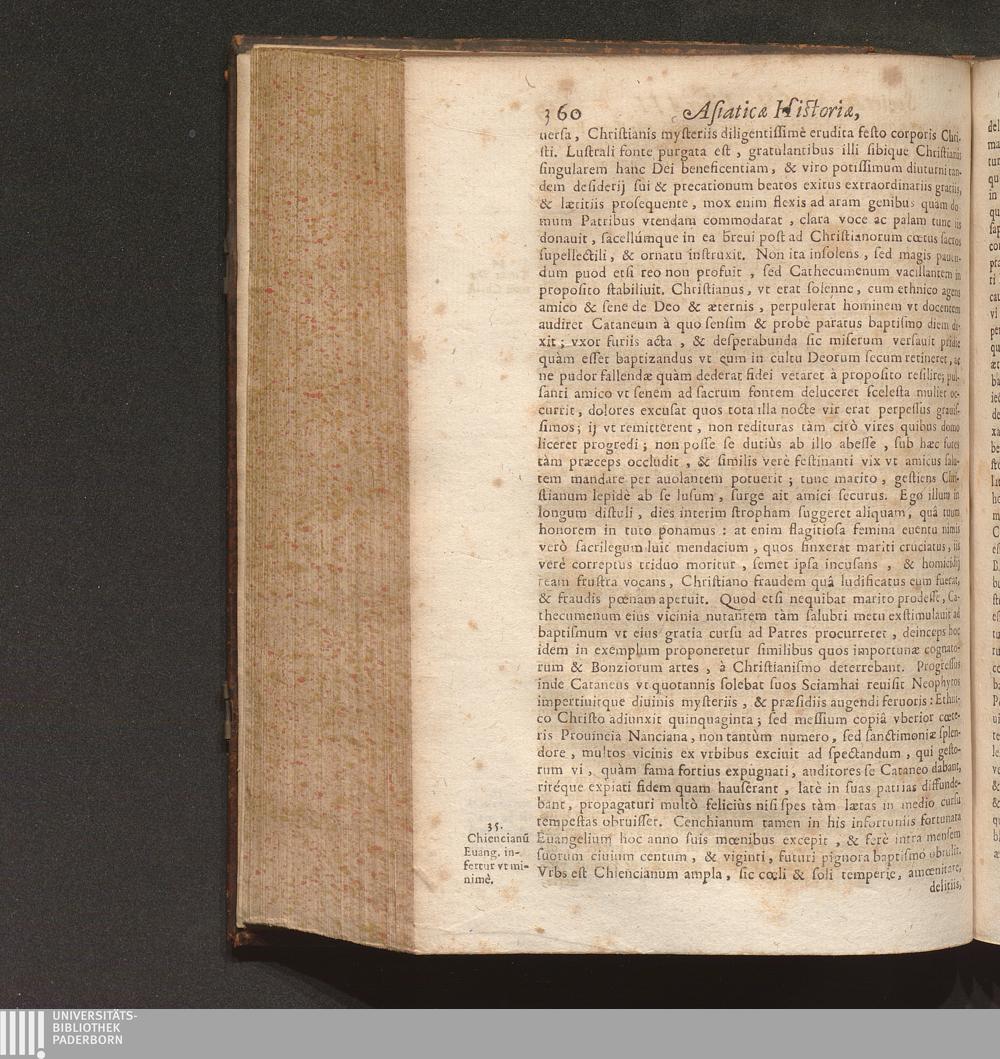 360 Aſiaticæ Hiſtoriæ,
uerſa, Chriſtianis myſteriis diligentiſſimè erudita feſto corporis Chri-
ſti. Luſtrali fonte purgata eſt, gratulantibus illi ſibique Chriſtianis
ſingularem hanc Dei beneficentiam, & viro potiſſimum diuturni tan-
dem deſiderij ſui & precationum beatos exitus extraordinariis gratiis,
& lætitiis proſequente, mox enim flexis ad aram genibus quam do
mum Patribus vtendam commodarat, clara voce ac palam tunc iis
donauit, ſacellúmque in ea breui poſt ad Chriſtianorum cœtus ſacros
ſupellectili, & ornatu inſtruxit. Non ita inſolens, ſed magis pauen-
dum puod etſi reo non profuit, ſed Cathecumenum vacillantem in
propoſito ſtabiliuit. Chriſtianus, vt erat ſolenne, cum ethnico agens
amico & ſene de Deo & æternis, perpulerat hominem vt docentem
audiret Cataneum à quo ſenſim & probè paratus baptiſmo diem di-
xit; vxor furiis acta, & deſperabunda ſic miſerum verſauit pridie
quàm eſſet baptizandus vt eum in cultu Deorum ſecum retineret, ac
ne pudor fallendæ quàm dederat fidei vetaret à propoſito reſilire; pul-
ſanti amico vt ſenem ad ſacrum fontem deluceret ſceleſta mulier oc-
currit, dolores excuſat quos tota illa nocte vir erat perpeſſus grauiſ-
ſimos; ij vt remitterent, non redituras tàm citò vires quibus domo
liceret progredi; non poſſe ſe dutiùs ab illo abeſſe, ſub hæc fores
tàm præceps occludit, & ſimilis verè feſtinanti vix vt amicus ſalu-
tem mandare per auolantem potuerit; tunc marito, geſtiens Chri-
ſtianum lepidè ab ſe luſum, ſurge ait amici ſecurus. Ego illum in
longum diſtuli, dies interim ſtropham ſuggeret aliquam, quâ tuum
honorem in tuto ponamus: at enim flagitioſa femina euentu nimis
verò ſacrilegum luit mendacium, quos finxerat mariti cruciatus, iis
verè correptus triduo moritur, ſemet ipſa incuſans, & homicidij
ream fruſtra vocans, Chriſtiano fraudem quâ ludificatus eum fuerat,
& fraudis pœnam aperuit. Quod etſi nequibat marito prodeſſe, Ca-
thecumenum eius vicinia nutantem tàm ſalubri metu exſtimulauit ad
baptiſmum vt eius gratia curſu ad Patres procurreret, deinceps hoc
idem in exemplum proponeretur ſimilibus quos importunæ cognato-
rum & Bonziorum artes, à Chriſtianiſmo deterrebant. Progreſſus
inde Cataneus vt quotannis ſolebat ſuos Sciamhai reuiſit Neophytos
impertiuitque diuinis myſteriis, & præſidiis augendi feruoris: Ethni-
co Chriſto adiunxit quinquaginta; ſed meſſium copiâ vberior cœte-
ris Prouincia Nanciana, non tantùm numero, ſed ſanctimoniæ ſplen-
dore, multos vicinis ex vrbibus exciuit ad ſpectandum, qui geſto-
rum vi, quàm fama fortius expugnati, auditores ſe Cataneo dabant,
ritéque expiati fidem quam hauſerant, latè in ſuas patrias diffunde-
bant, propagaturi multò feliciùs niſi ſpes tàm lætas in medio curſu
tempeſtas obruiſſet. Cenchianum tamen in his infortuniis fortunata
Euangelium hoc anno ſuis mœnibus excepit, & ferè intra menſem
ſuorum ciuium centum, & viginti, futuri pignora baptiſmo obtulit.
Vrbs eſt Chiencianum ampla, ſic cœli & ſoli temperie, amœnitate,
delitiis,
35.
Chiencianũ
Euang. in-
fertur vt mi-
nimè.
UNIVERSITÄTS-
BIBLIOTHEK
PADERBORN